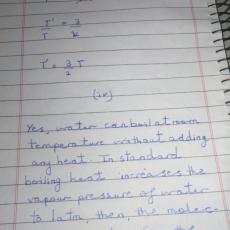 T' = 3
T x
T' = 3/2 T
(2x)
Yes, water can boil at room
temperature without adding
any heat. In standard
boiling heat increases the
vapour pressure of water
to 1 atm, then, the molec-
the